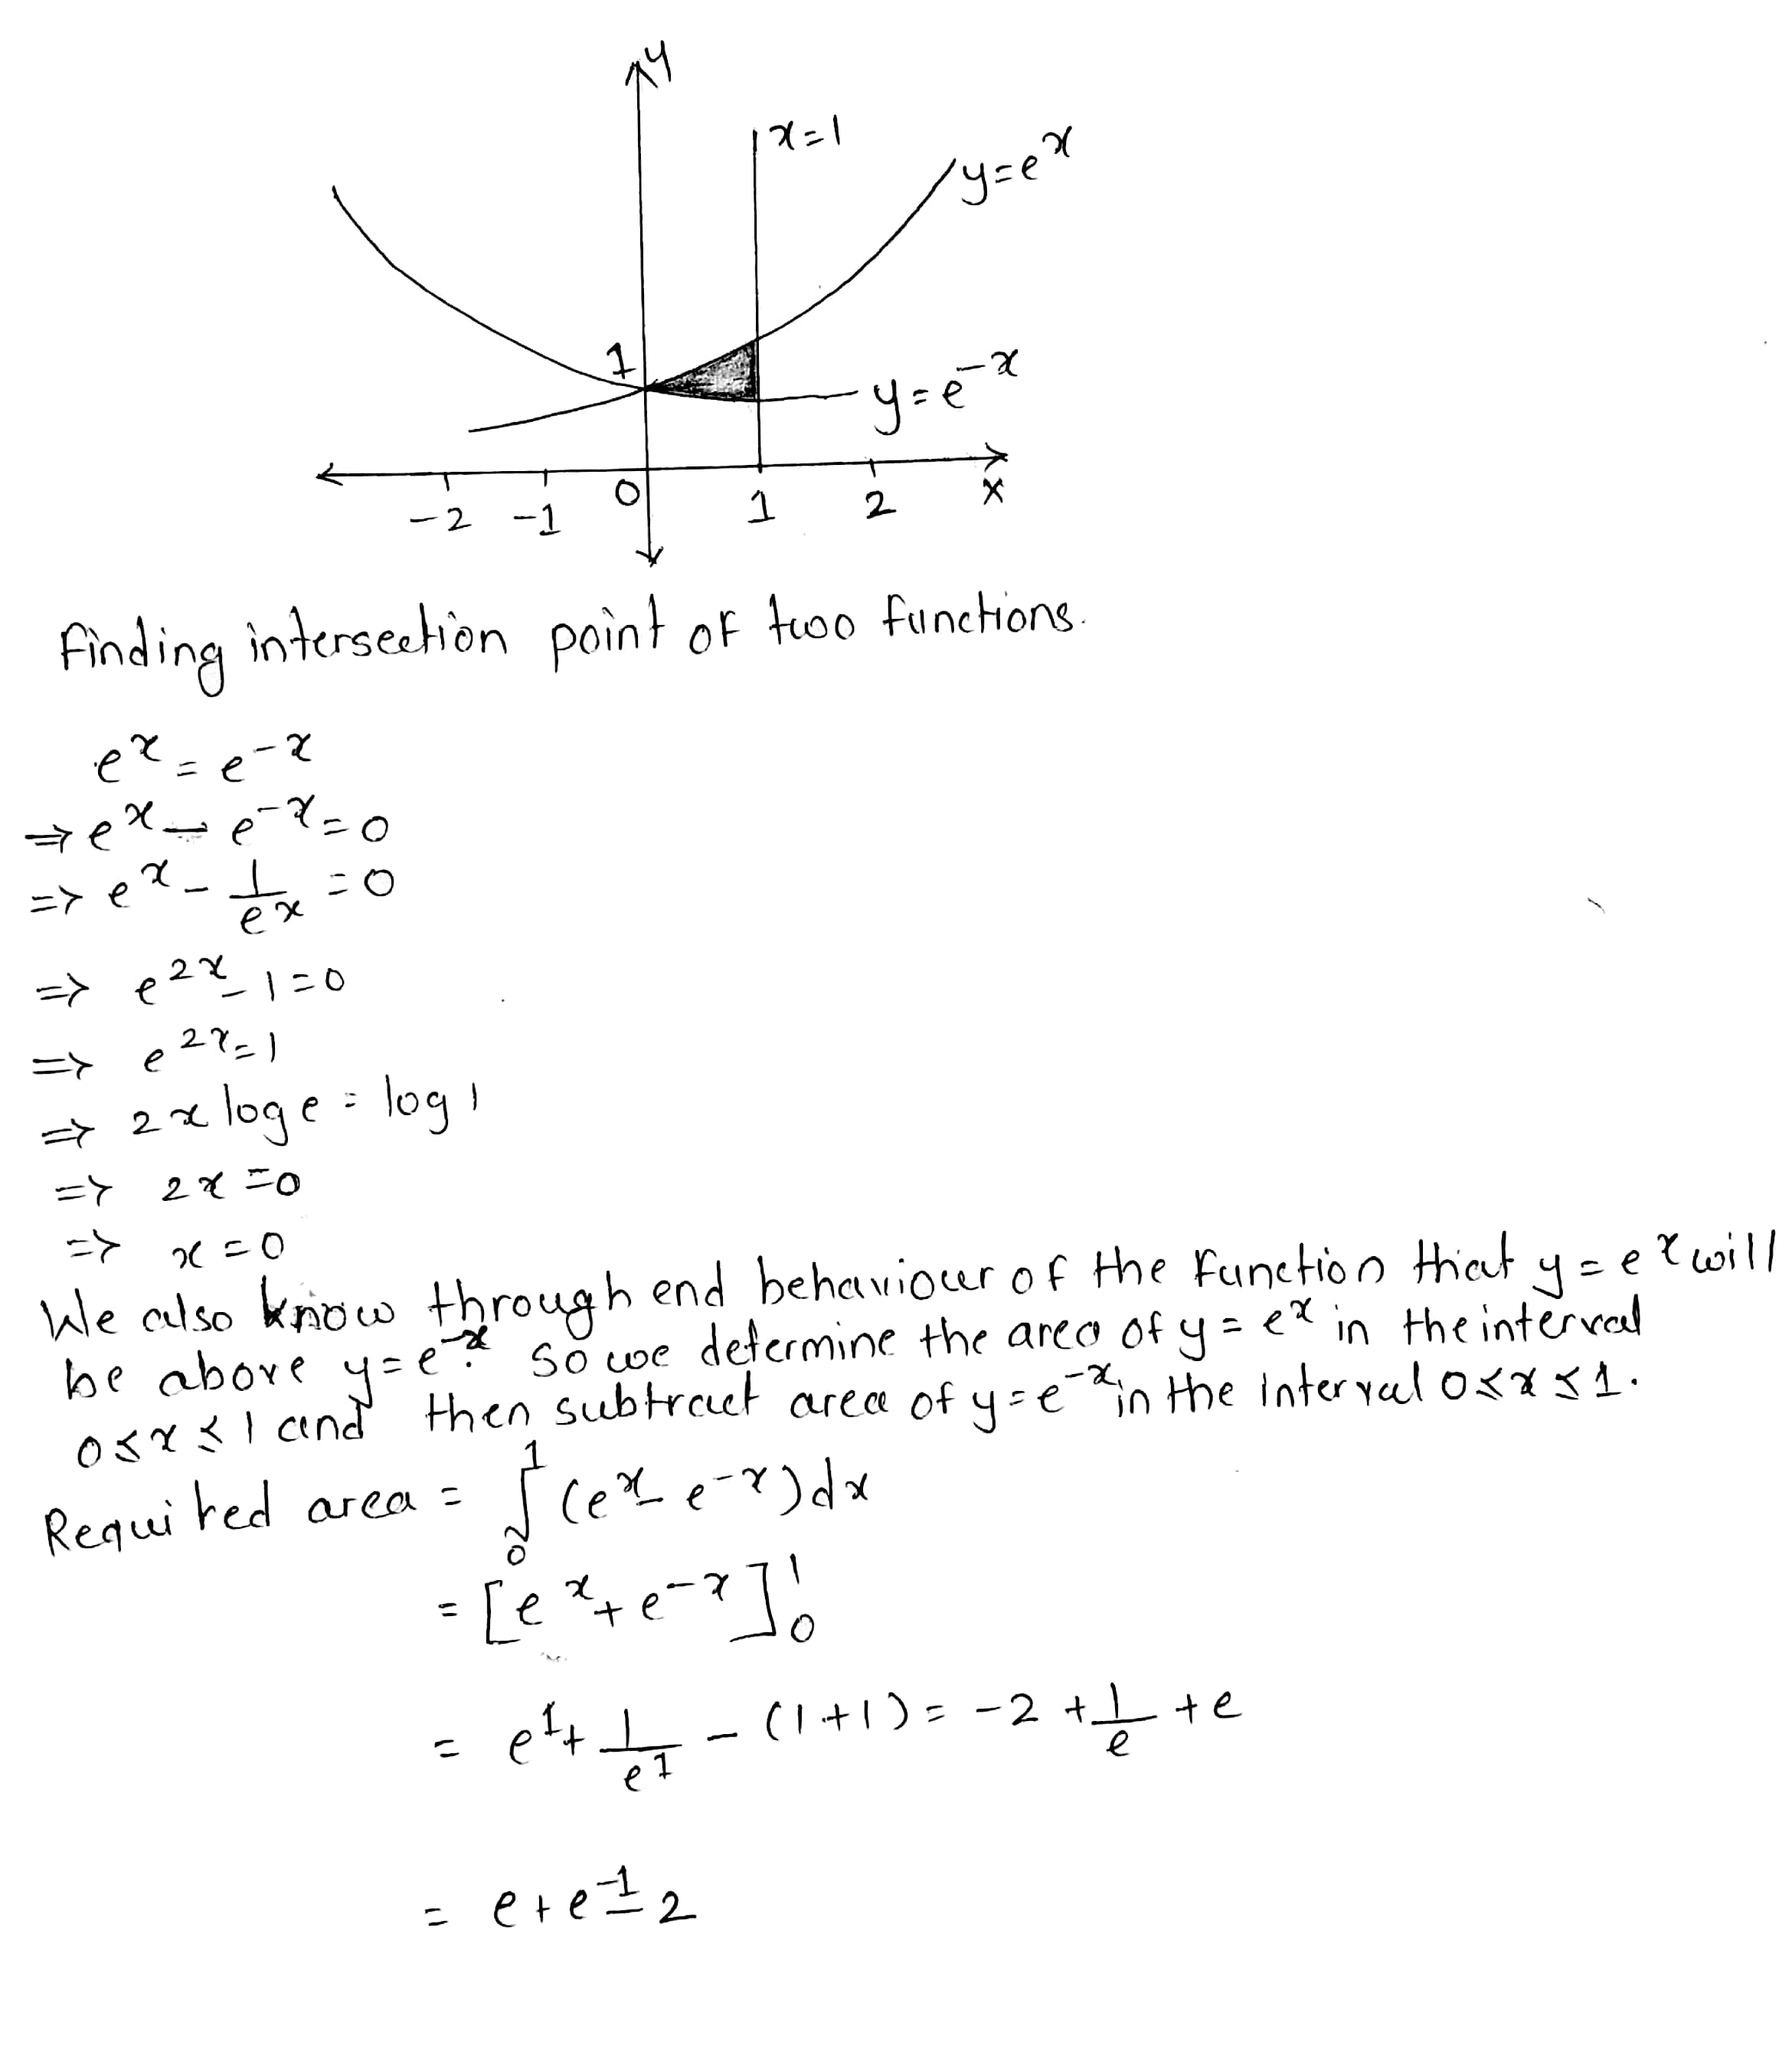 y
x=1
y=e^x
1
y=e^-x
-2 -1 0 1 2 x
Finding intersection point of two functions.
e^x = e^-x
⇒ e^x - e^-x = 0
⇒ e^x - 1/e^x = 0
⇒ e^2x - 1 = 0
⇒ e^2x = 1
⇒ 2x log e = log 1
⇒ 2x = 0
⇒ x = 0
We also know through end behaviour of the function that y = e^x will
be above y = e^-x. So we determine the area of y = e^x in the interval
0 ≤ x ≤ 1 and then subtract area of y = e^-x in the interval 0 ≤ x ≤ 1.
Required area = ∫_0^1 (e^x - e^-x) dx
= [e^x + e^-x]_0^1
= e^1 + 1/e^1 - (1+1) = -2 + 1/e + e
= e + e^-1 - 2